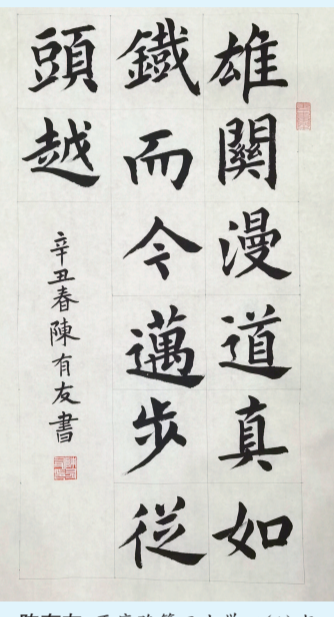 雄關漫道真如
鐵而今邁步從
頭越
辛丑春陳有友書